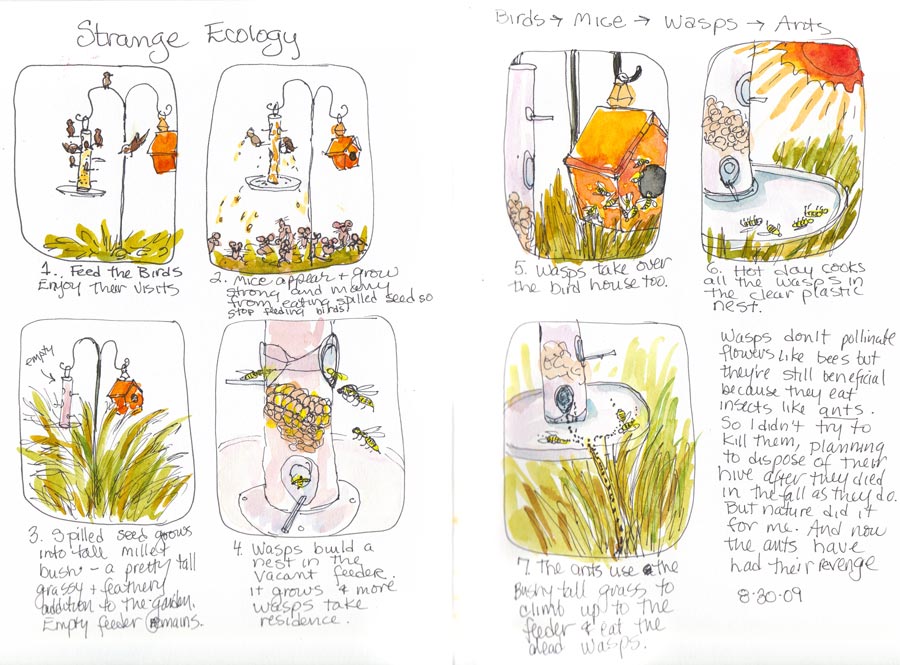 Strange Ecology
Birds → Mice → Wasps → Ants
1. Feed the Birds
Enjoy Their Visits
2. Mice appear + grow
strong and many
from eating spilled seed so
stop feeding birds!
empty
3. Spilled seed grows
into tall millet
bush - a pretty tall
grassy + feathery
addition to the garden.
Empty feeder remains.
4. Wasps build a
nest in the
vacant feeder.
it grows & more
wasps take
residence.
5. Wasps take over
the bird house too.
6. Hot day cooks
all the wasps in
the clear plastic
nest.
7. The ants use the
Bushy tall grass to
climb up to the
feeder & eat the
dead wasps.
Wasps don't pollinate
flowers like bees but
they're still beneficial
because they eat
insects like ants.
So I didn't try to
kill them, planning
to dispose of their
hive after they died
in the fall as they do.
But nature did it
for me. And now
the ants have
had their revenge
8-30-09